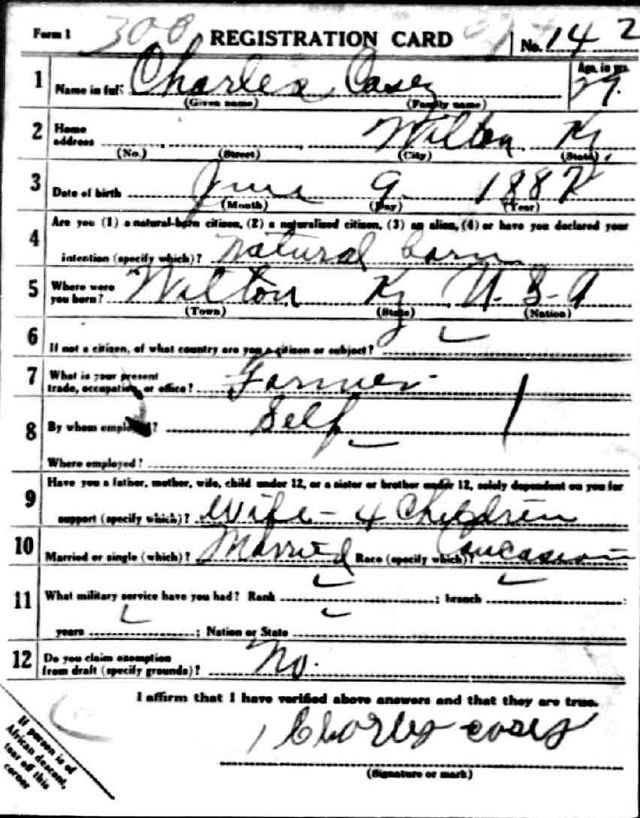 Form 1 300 REGISTRATION CARD No. 142
1 Name in full Charles Casey Age, in yrs. 29
(Given name) (Family name)
2 Home address Wilton Ky.
(No.) (Street) (City) (State)
3 Date of birth June 9 1887
(Month) (Day) (Year)
4 Are you (1) a natural-born citizen, (2) a naturalized citizen, (3) an alien, (4) or have you declared your
intention (specify which)? natural born
5 Where were you born? Wilton Ky U.S.A
(Town) (State) (Nation)
6 If not a citizen, of what country are you a citizen or subject?
7 What is your present trade, occupation, or office? Farmer
8 By whom employed? Self
Where employed?
9 Have you a father, mother, wife, child under 12, or a sister or brother under 12, solely dependent on you for
support (specify which)? Wife - 4 Children
10 Married or single (which)? Married Race (specify which)? Caucasian
11 What military service have you had? Rank ; branch ;
years ; Nation or State
12 Do you claim exemption from draft (specify grounds)? No.
I affirm that I have verified above answers and that they are true.
Charles casey
(Signature or mark)
If person is of
African descent,
tear off this
corner